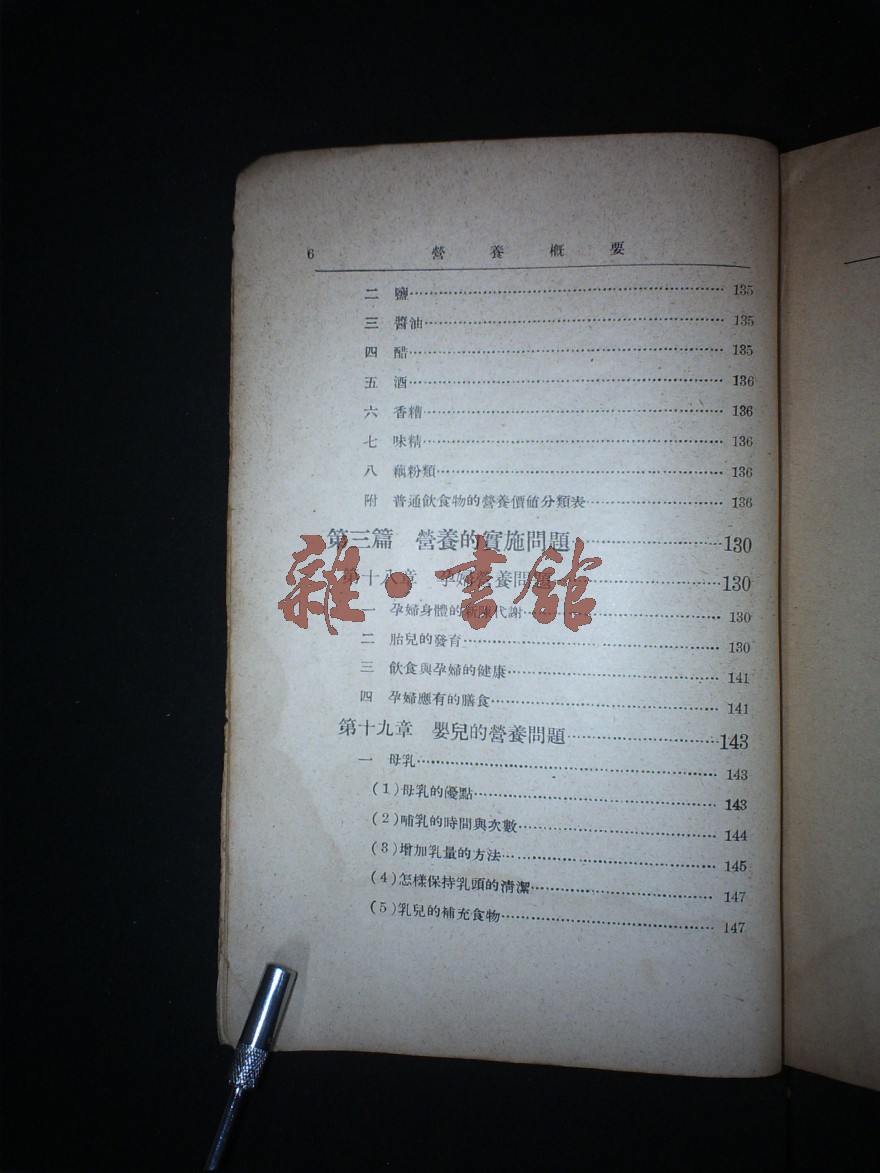 6 營養概要
二 鹽 135
三 醬油 135
四 醋 135
五 酒 136
六 香糟 136
七 味精 136
八 藕粉類 136
附 普通飲食物的營養價値分類表 136
第三篇 營養的實施問題 130
第十八章 孕婦營養問題 130
一 孕婦身體的新陳代謝 130
二 胎兒的發育 130
三 飲食與孕婦的健康 141
四 孕婦應有的膳食 141
第十九章 嬰兒的營養問題 143
一 母乳 143
(1)母乳的優點 143
(2)哺乳的時間與次數 144
(3)增加乳量的方法 145
(4)怎樣保持乳頭的清潔 147
(5)乳兒的補充食物 147
雜·書館